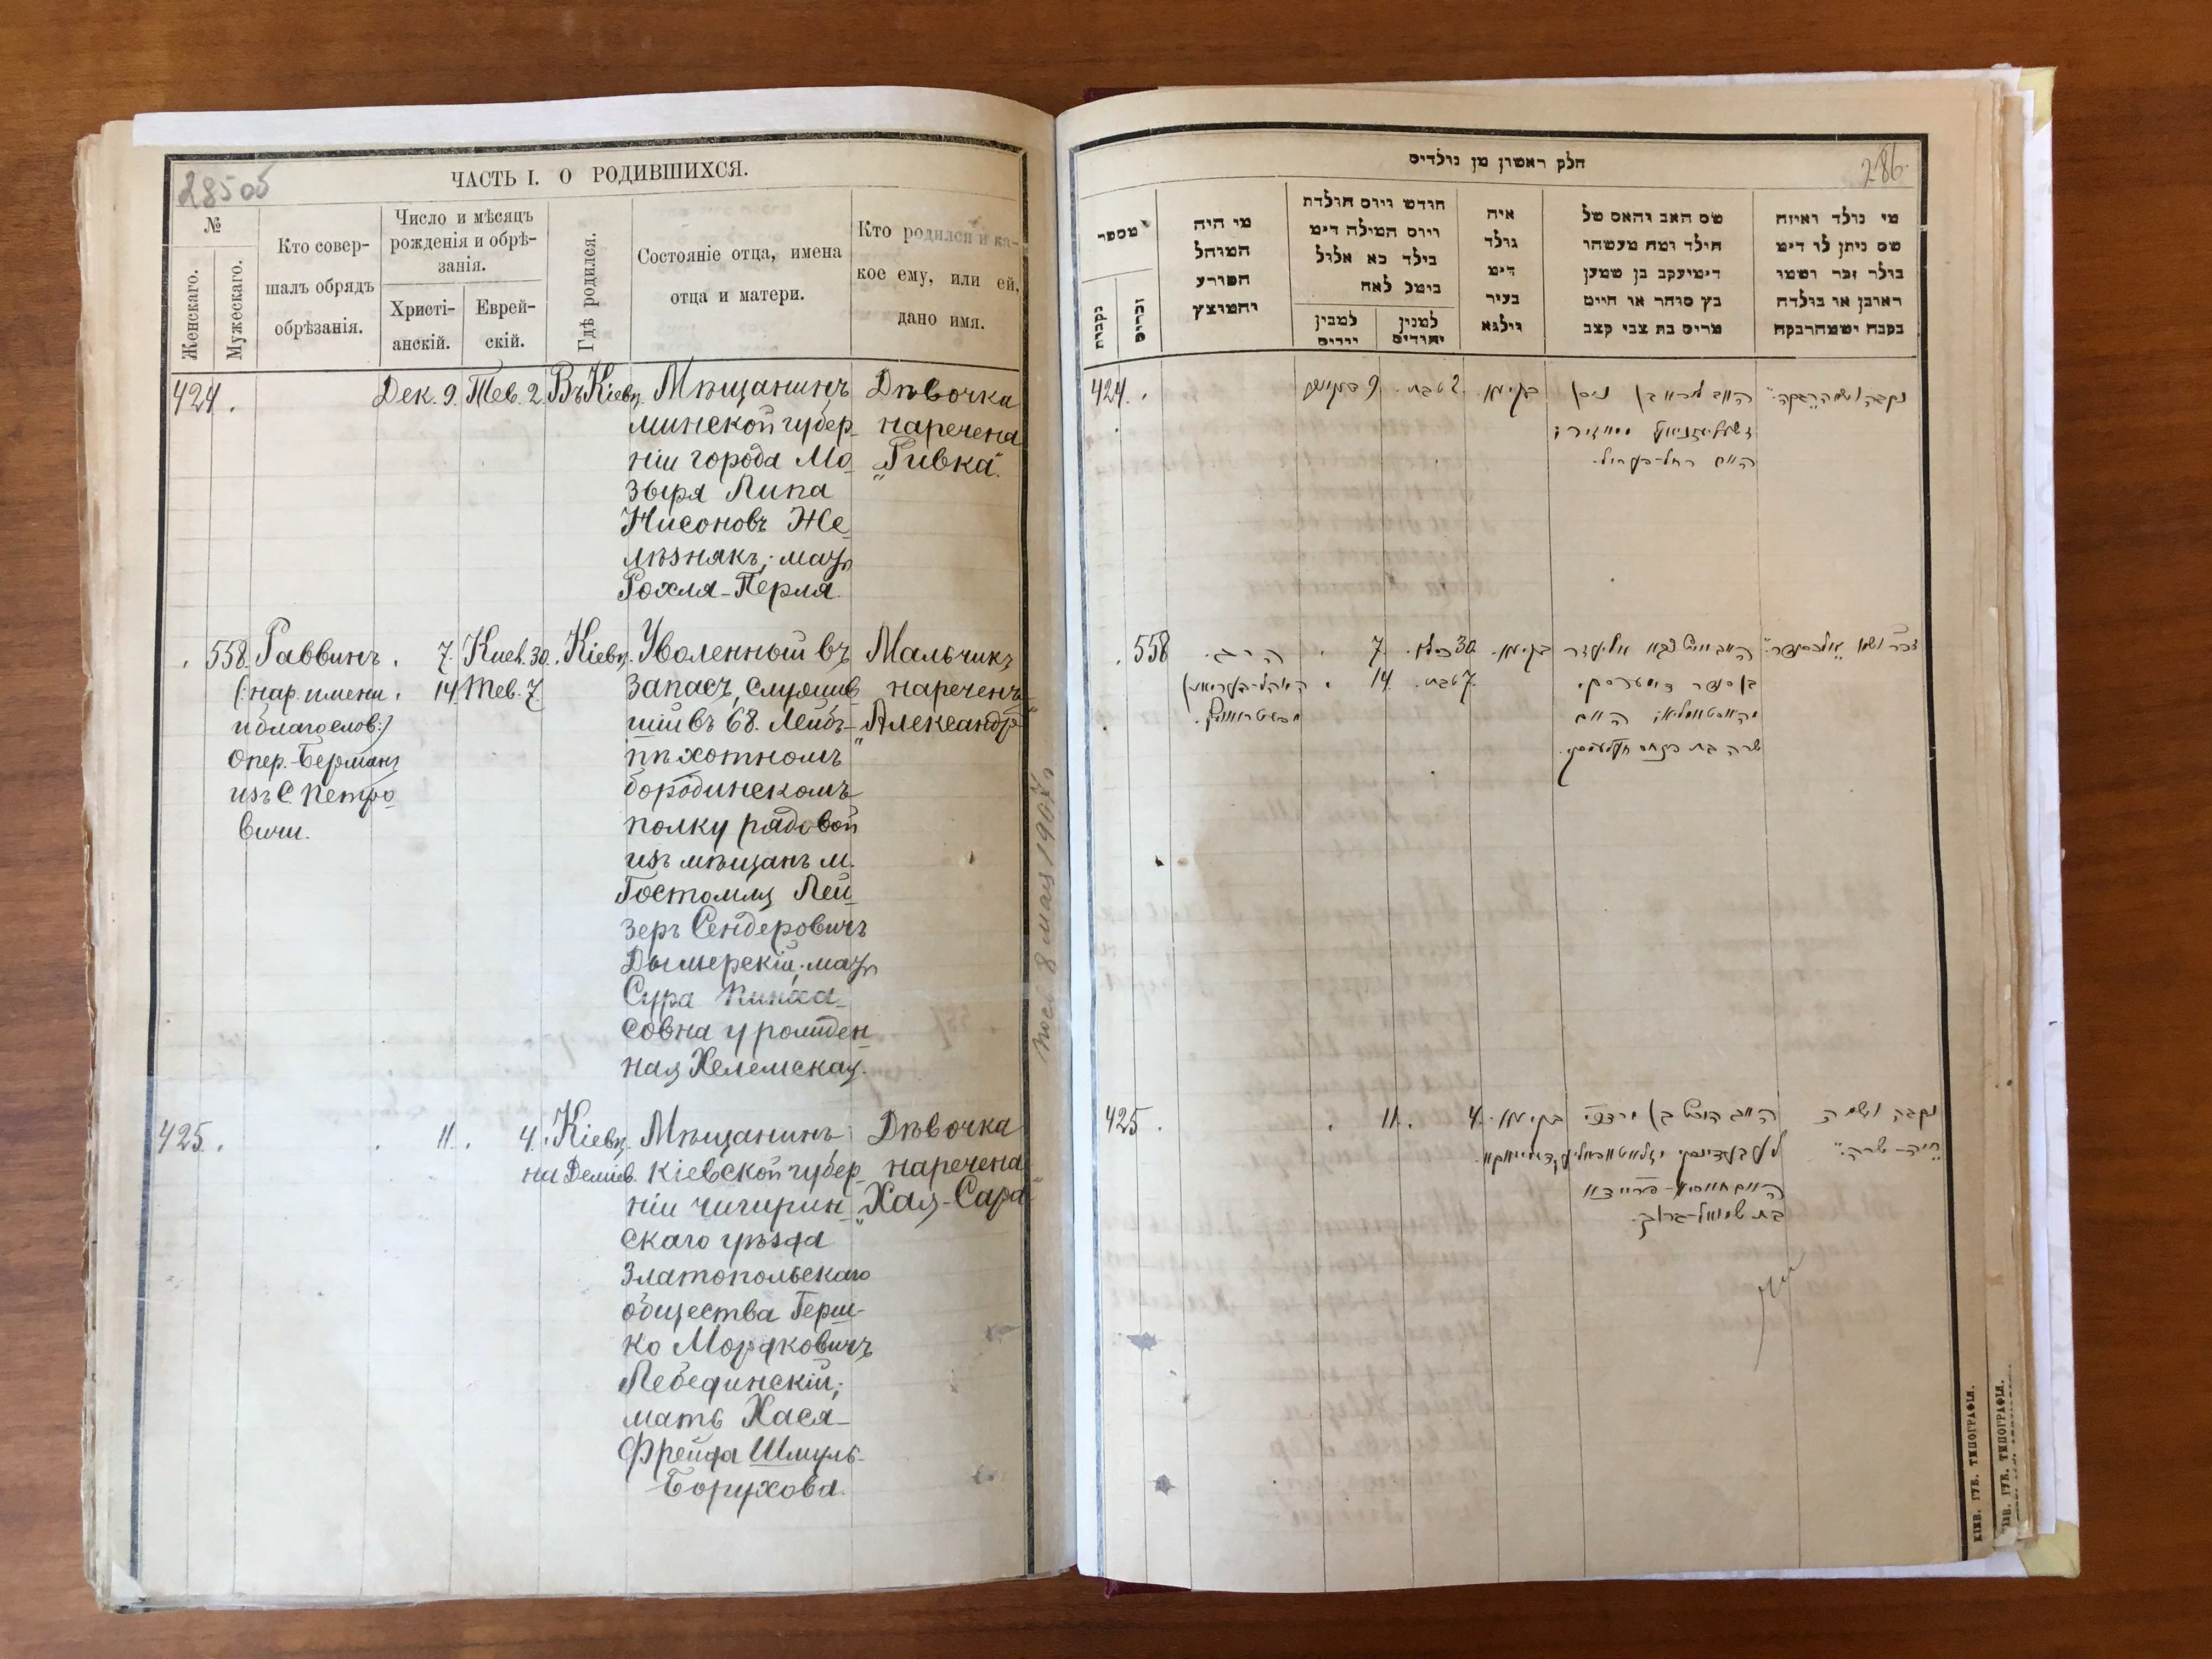 285 об
ЧАСТЬ I. О РОДИВШИХСЯ.
№
Женскаго.
Мужескаго.
Кто совер-
шалъ обрядъ
обрѣзанія.
Число и мѣсяцъ
рожденія и обрѣ-
занія.
Христі-
анскій.
Еврей-
скій.
Гдѣ родился.
Состояніе отца, имена
отца и матери.
Кто родился и ка-
кое ему, или ей,
дано имя.
424.
Дек. 9.
Тев. 2.
Въ Кіевѣ
Мѣщанинъ
минской губер-
ніи города Мо-
зыря Липа
Нисоновъ Же-
лѣзнякъ; мать
Рохля-Перля.
Дѣвочка
наречена
„Ривка".
558.
Раввинъ.
(: нар. имени
и благослов:)
Опер.-Берманъ
изъ С. Петро-
вичи.
7.
14.
Кисл. 30.
Тев. 7.
Кіевѣ.
Уволенный въ
запасъ, служив-
шій въ 68. Лейбъ-
пѣхотномъ
бородинскомъ
полку рядовой
изъ мѣщанъ м.
Гостомля Лей-
зеръ Сендеровичъ
Дымерскій; мать
Сура Пинха-
совна урожден-
ная Хелемская.
Мальчикъ
нареченъ
„Александръ"
425.
11.
4.
Кіевѣ
на Деміев.
Мѣщанинъ
Кіевской губер-
ніи чигирин-
скаго уѣзда
Златопольскаго
общества Герш-
ко Мордковичъ
Лебединскій;
мать Хася-
Фрейда Шмуль-
Борухова.
Дѣвочка
наречена
„Хая-Сара"
8 мая 1907 г.
286.
חלק ראשון מן נולדים
מספר
נקבות
זכרים
מי היה
המוהל
הפורע
והמוצץ
חודש ויום הולדת
ויום המילה דימ
בילד כא אלול
בימל לאח
למבין
יורים
למנין
יהודים
איה
נולד
דימ
בעיר
ווילנא
שם האב והאם של
הילד ומה מעשהו
דימיעקב בן שמען
בץ סוחר או חייט
מרים בת צבי קצב
מי נולד ואיזה
שם ניתן לו דימ
בולר זכר ושמו
ראובן או בולדה
נקבה ושמה רבקה
424.
9 דעקאבער
2 טבת.
בקיעוו.
נקבה ושמה „רבקה"
558.
הרב.
7.
14.
30 כסלו.
7 טבת.
בקיעוו.
זכר ושמו „אלכסנדר"
425.
11.
4.
בקיעוו.
נקבה ושמה
„חיה-שרה"
בת שמואל-ברוך.
КІЕВ. ГУБ. ТИПОГРАФІЯ.
КІЕВ. ГУБ. ТИПОГРАФІЯ.